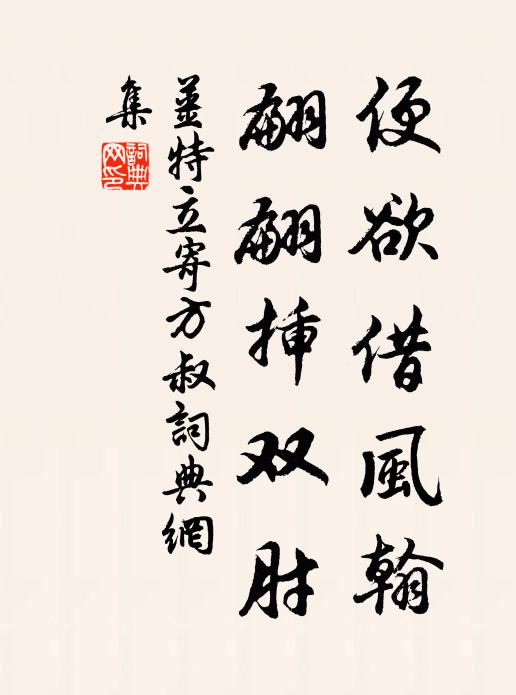 便欲借風翰
翩翩揷双肘
姜特立寄方叔詞典網
集
詞典網印